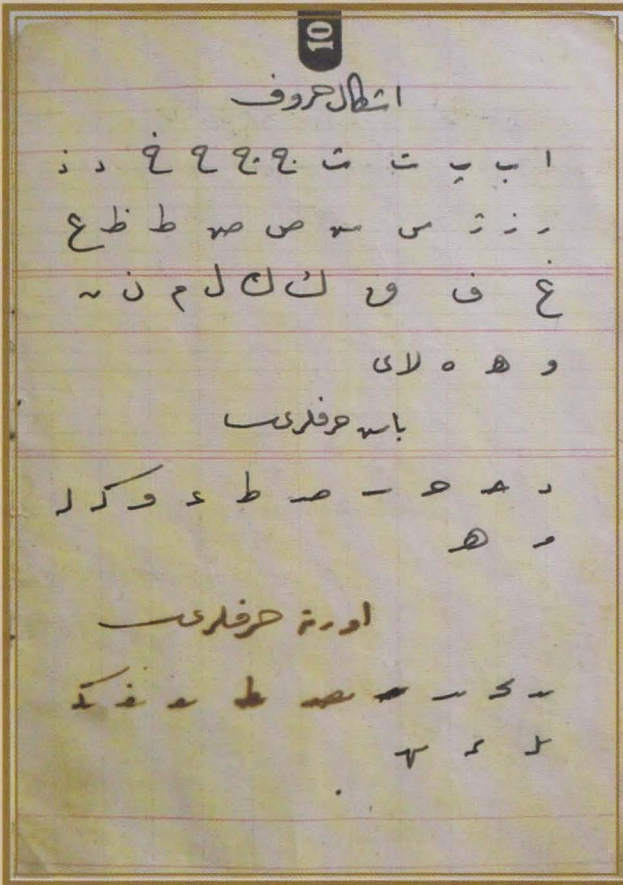 10
اشكال حروف
ا ب پ ت ث ج چ ح خ د ذ
ر ز ژ س س ص ض ط ظ ع
غ ف ق ك ك ل م ن ں
و ه ه لا ى
باش حرفلرى
د حـ هـ ـ صـ ط ع و كـ لـ
مـ هـ
اورته حرفلرى
ـصـ ط ـعـ ـفـ ـكـ
ـلـ ـمـ ـهـ